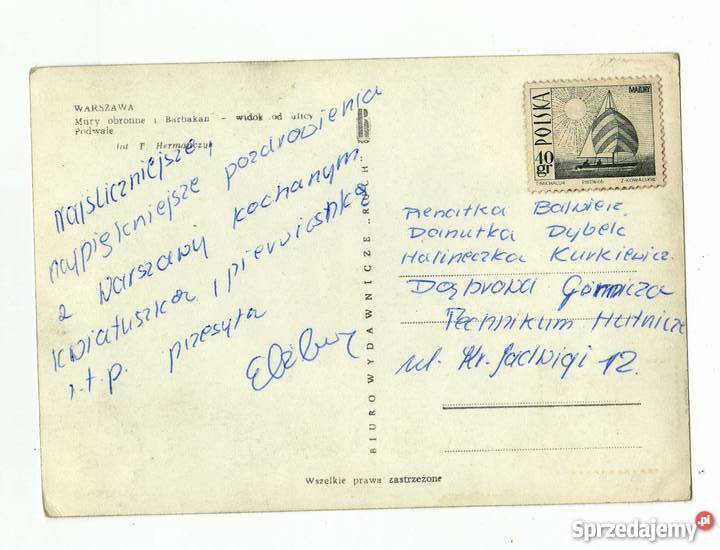 WARSZAWA
Mury obronne i Barbakan - widok od ulicy
Podwale
fot T. Hermańczyk
Najśliczniejsze,
najpiękniejsze pozdrowienia
z Warszawy kochanym
kwiatuszka i pierwiastka
i.t.p. przesyła
BIURO WYDAWNICZE „RUCH"
POLSKA
MAZURY
40 gr
T. MICHALUK PWPW-66 Z. KOWALSKI
Renatka
Danutka Dybek
Halineczka Kurkiewicz
Dąbrowa Górnicza
Technikum Hutnicze
ul. Kr. Jadwigi 12.
Wszelkie prawa zastrzeżone
Sprzedajemy.pl